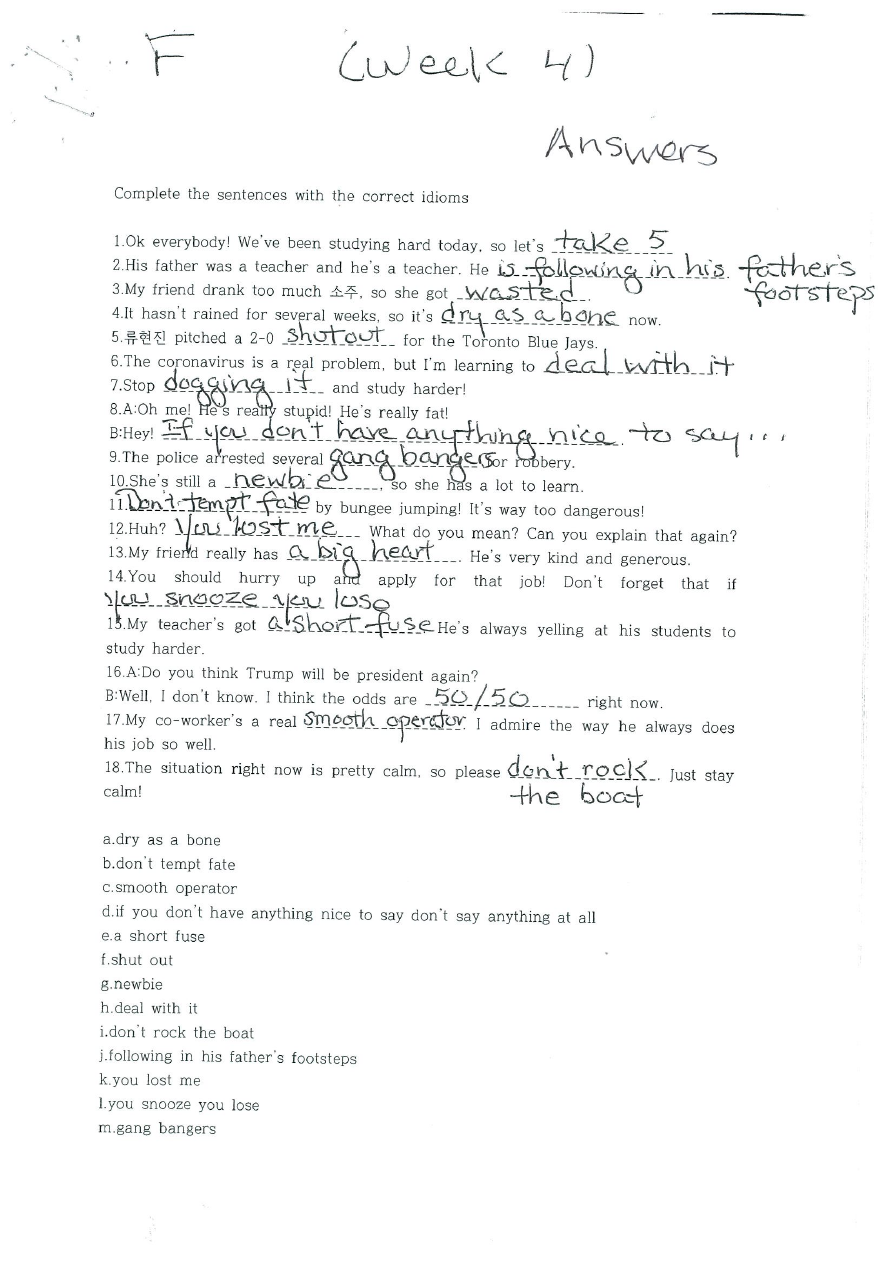 F (Week 4)
Answers
Complete the sentences with the correct idioms
1.Ok everybody! We've been studying hard today, so let's take 5
2.His father was a teacher and he's a teacher. He is following in his father's
footsteps
3.My friend drank too much 소주, so she got wasted.
4.It hasn't rained for several weeks, so it's dry as a bone now.
5.류현진 pitched a 2-0 shutout for the Toronto Blue Jays.
6.The coronavirus is a real problem, but I'm learning to deal with it
7.Stop dogging it and study harder!
8.A:Oh me! He's really stupid! He's really fat!
B:Hey! If you don't have anything nice to say...
9.The police arrested several gang bangers for robbery.
10.She's still a newbie, so she has a lot to learn.
11.Don't tempt fate by bungee jumping! It's way too dangerous!
12.Huh? You lost me What do you mean? Can you explain that again?
13.My friend really has a big heart. He's very kind and generous.
14.You should hurry up and apply for that job! Don't forget that if
you snooze you lose
15.My teacher's got a short fuse He's always yelling at his students to
study harder.
16.A:Do you think Trump will be president again?
B:Well, I don't know. I think the odds are 50/50 right now.
17.My co-worker's a real smooth operator. I admire the way he always does
his job so well.
18.The situation right now is pretty calm, so please don't rock. Just stay
calm! the boat
a.dry as a bone
b.don't tempt fate
c.smooth operator
d.if you don't have anything nice to say don't say anything at all
e.a short fuse
f.shut out
g.newbie
h.deal with it
i.don't rock the boat
j.following in his father's footsteps
k.you lost me
l.you snooze you lose
m.gang bangers